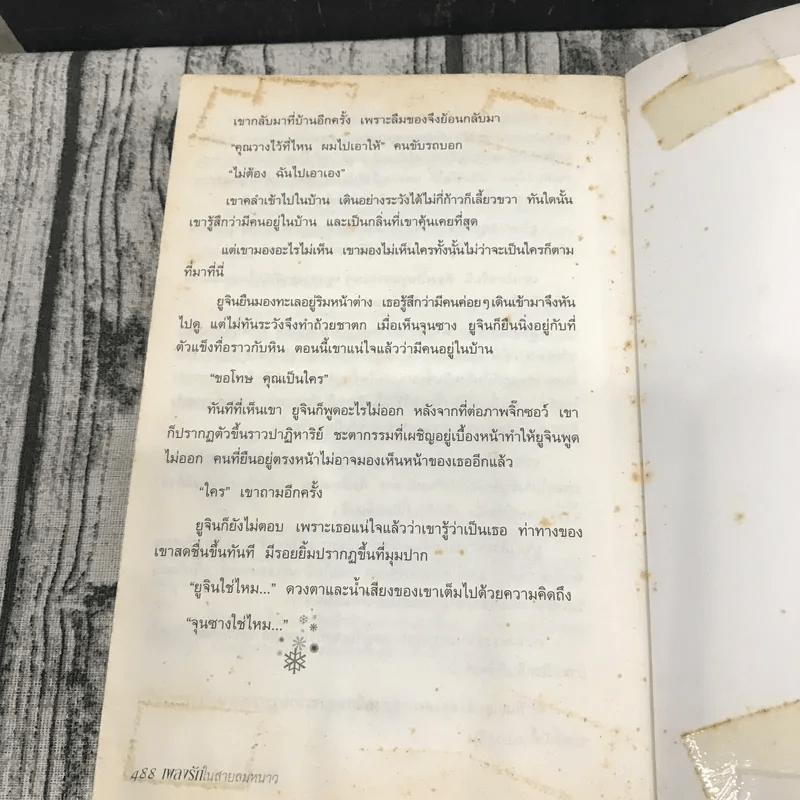 เขากลับมาที่บ้านอีกครั้ง เพราะลืมของจึงย้อนกลับมา
“คุณวางไว้ที่ไหน ผมไปเอาให้” คนขับรถบอก
“ไม่ต้อง ฉันไปเอาเอง”
เขาคลำเข้าไปในบ้าน เดินอย่างระวังได้ไม่กี่ก้าวก็เลี้ยวขวา ทันใดนั้น
เขารู้สึกว่ามีคนอยู่ในบ้าน และเป็นกลิ่นที่เขาคุ้นเคยที่สุด
แต่เขามองอะไรไม่เห็น เขามองไม่เห็นใครทั้งนั้นไม่ว่าจะเป็นใครก็ตาม
ที่มาที่นี่
ยูจินยืนมองทะเลอยู่ริมหน้าต่าง เธอรู้สึกว่ามีคนค่อยๆเดินเข้ามาจึงหัน
ไปดู แต่ไม่ทันระวังจึงทำถ้วยชาตก เมื่อเห็นจุนซาง ยูจินก็ยืนนิ่งอยู่กับที่
ตัวแข็งทื่อราวกับหิน ตอนนี้เขาแน่ใจแล้วว่ามีคนอยู่ในบ้าน
“ขอโทษ คุณเป็นใคร”
ทันทีที่เห็นเขา ยูจินก็พูดอะไรไม่ออก หลังจากที่ต่อภาพจิ๊กซอว์ เขา
ก็ปรากฏตัวขึ้นราวปาฏิหาริย์ ชะตากรรมที่เผชิญอยู่เบื้องหน้าทำให้ยูจินพูด
ไม่ออก คนที่ยืนอยู่ตรงหน้าไม่อาจมองเห็นหน้าของเธออีกแล้ว
“ใคร” เขาถามอีกครั้ง
ยูจินก็ยังไม่ตอบ เพราะเธอแน่ใจแล้วว่าเขารู้ว่าเป็นเธอ ท่าทางของ
เขาสดชื่นขึ้นทันที มีรอยยิ้มปรากฏขึ้นที่มุมปาก
“ยูจินใช่ไหม...” ดวงตาและน้ำเสียงของเขาเต็มไปด้วยความคิดถึง
“จุนซางใช่ไหม...”
488 เพลงรักในสายลมหนาว